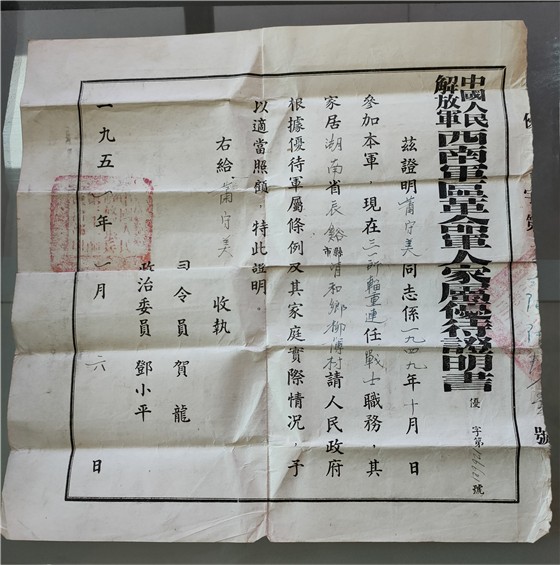 中國人民解放軍西南軍區革命軍人家屬優待證明書
優字第 號
茲證明蕭守美同志係一九四九年十月 日
參加本軍，現在三一師輜重連任戰士職務，其
家居湖南省辰谿縣市 和鄉柳 村請人民政府
根據優待軍屬條例及其家庭實際情況，予
以適當照顧，特此證明
右給蕭守美 收執
司令員 賀龍
政治委員 鄧小平
一九五 年一月六日
優字第 號